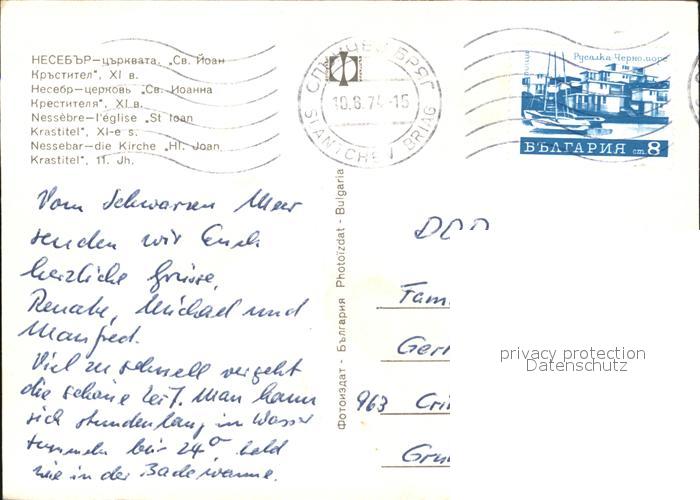 НЕСЕБЪР—църквата. „Св. Йоан
Кръстител", XI в.
Несебр—церковь „Св. Иоанна
Крестителя", XI в.
Nessèbre—l'église "St Ioan
Krastitel", XI-e s.
Nessebar—die Kirche „Hl. Joan
Krastitel", 11. Jh.
СЛЪНЧЕВ БРЯГ
10.6.74-15
SLANTCHEV BRIAG
Русалка Черноморе
БЪЛГАРИЯ ст. 8
Vom Schwarzen Meer
senden wir Euch
herzliche Grüsse,
Renate, Michael und
Manfred.
Viel zu schnell vergeht
die schöne Zeit. Man kann
sich stundenlang im Wasser
tummeln bei 24°, bald
wie in der Badewanne.
Фотоиздат - България Photoizdat - Bulgaria
DDR
Fam
Ger
963 Cri
Gru
privacy protection
Datenschutz